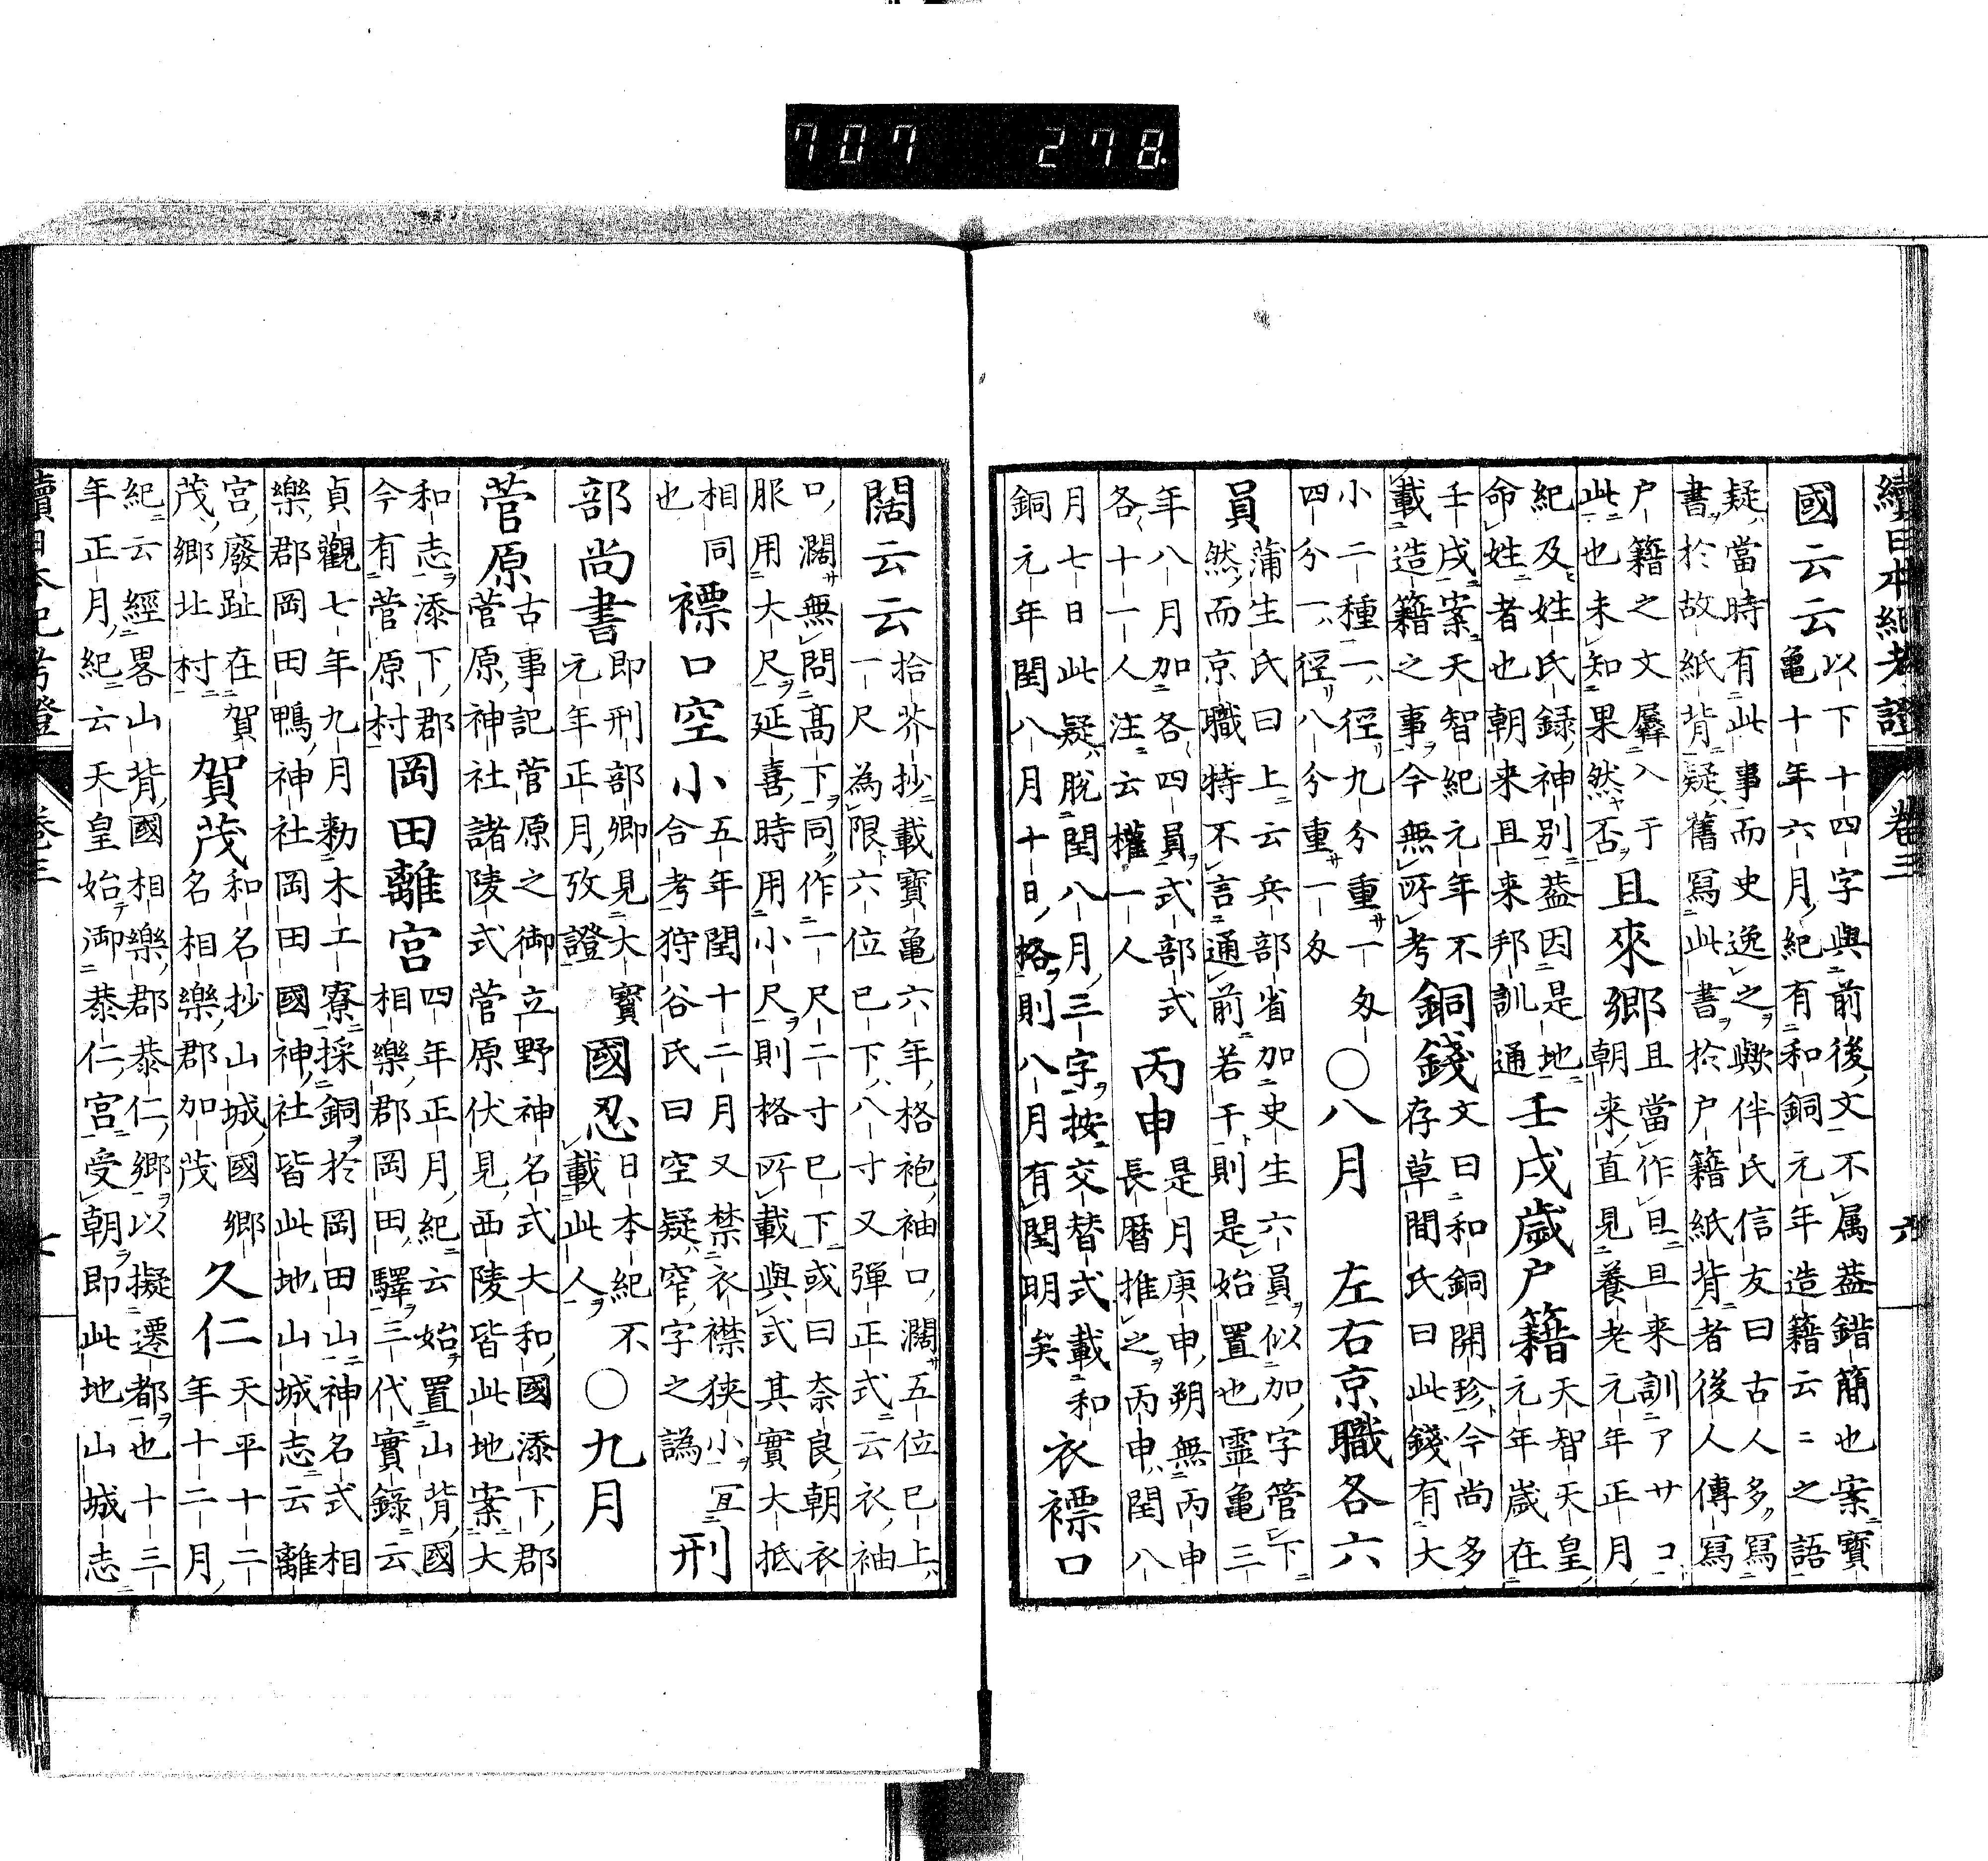 707 278.
續日本紀考證 卷三 六
國云云
以下十四字與前後文不属葢錯簡也案寶
亀十年六月紀有和銅元年造籍云〻之語
疑當時有此事而史逸之歟伴氏信友曰古人多冩
書於故紙背疑舊冩此書於户籍紙背者後人傳冩
户籍之文羼入于
此也未知果然否
且來鄉
且當作旦旦来訓アサコ
朝来直見養老元年正月
紀及姓氏録神别葢因是地
命姓者也朝来且来邦訓通
壬戌歳户籍
天智天皇
元年歳在
壬戌案天智紀元年不
載造籍之事今無所考
銅錢
文曰和銅開珍今尚多
存草間氏曰此錢有大
小二種一徑九分重一匁
四分一徑八分重一匁
〇八月 左右京職各六
員
蒲生氏曰上云兵部省加史生六員似加字管下
然而京職特不言通前若干則是始置也霊亀三
年八月加各四員式部式
各十一人注云權一人
丙申
是月庚申朔無丙申
長暦推之丙申閏八
月七日此疑脱閏八月三字按交替式載和
銅元年閏八月十日格則八月有閏明矣
衣褾口
闊云云
拾芥抄載寶亀六年格袍袖口濶五位已上
一尺為限六位已下八寸又彈正式云衣袖
口濶無問髙下同作一尺二寸已下或曰奈良朝衣
服用大尺延喜時用小尺則格所載與式其實大抵
相同
也
褾口空小
五年閏十二月又禁衣襟狭小冝
合考狩谷氏曰空疑窄字之譌
刑
部尚書
即刑部卿見大寳
元年正月攷證
國忍
日本紀不
載此人
〇九月
菅原
古事記菅原之御立野神名式大和國添下郡
菅原神社諸陵式菅原伏見西陵皆此地案大
和志添下郡
今有菅原村
岡田離宮
四年正月紀云始置山背國
相樂郡岡田驛三代實錄云
貞觀七年九月勑木工寮採銅於岡田山神名式相
樂郡岡田鴨神社岡田國神社皆此地山城志云離
宮廢趾在賀
茂鄉北村
賀茂
和名抄山城國
名相樂郡加茂
鄉
久仁
天平十二
年十二月
紀云經畧山背國相樂郡恭仁鄉以擬遷都也十三
年正月紀云天皇始御恭仁宮受朝即此地山城志
續日本紀考證 卷三 七